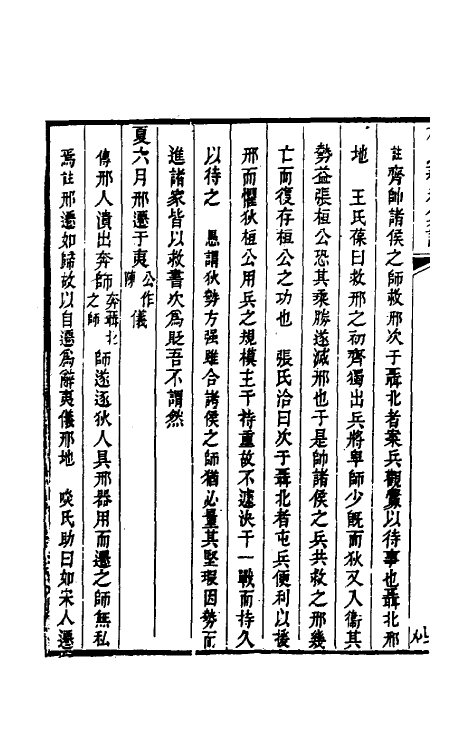 註齊帥諸侯之師救邢次于聶北者案兵觀釁以待事也聶北邢
地　王氏葆曰救邢之初齊獨出兵將卑師少既而狄又入衞其
勢益張桓公恐其乘勝遂滅邢也于是帥諸侯之兵共救之邢幾
亡而復存桓公之功也　張氏洽曰次于聶北者屯兵便利以援
邢而懼狄桓公用兵之規模主于持重故不遽決于一戰而持久
以待之　愚謂狄勢方强雖合諸侯之師猶必量其堅瑕因勢而
進諸家皆以救書次為貶吾不謂然
夏六月邢遷于夷儀公作陳
傳邢人潰出奔師奔聶北之師　師遂逐狄人具邢器用而遷之師無私
焉註邢遷如歸故以自遷為辭夷儀邢地　啖氏助曰如宋人遷